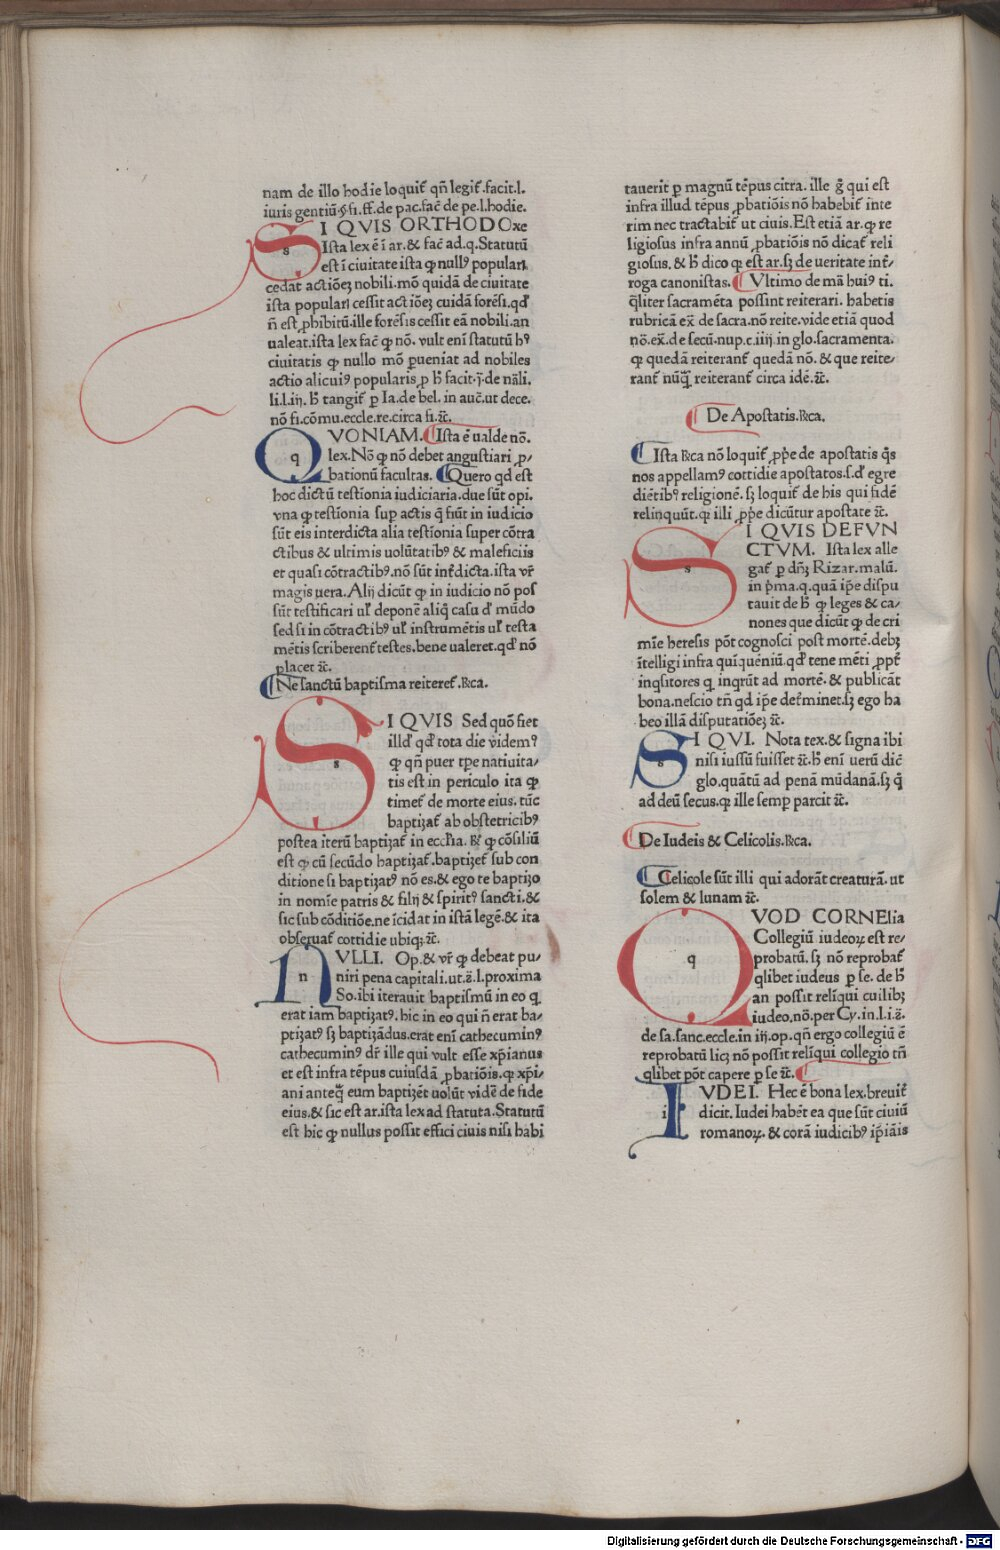 nam de illo hodie loquit̃ qñ legit̃.facit.l.
iuris gentiũ.§.fi.ff.de pac.fac̃ de pe.l.hodie.
SI QVIS ORTHODOxe
Ista lex ẽ ĩ ar.& fac̃ ad.q.Statutũ
est ĩ ciuitate ista ꝙ null⁹ popuları
cedat actiõeȝ nobili.mõ quidã de ciuitate
ista popuları cessit actiõeȝ cuidã forẽsi.qđ
ñ est ꝓhibitũ.ille forẽsis cessit eã nobili.an
ualeat.ista lex fac̃ ꝙ nõ. vult enĩ statutũ h⁹
ciuitatis ꝙ nullo mõ ꝑueniat ad nobiles
actio alicui⁹ popularis ꝑ ħ facit.j̃.de nãli.
li.l.iij. ħ tangit̃ ꝑ Ia.de bel. in auc̃.ut dece.
nõ fi.cõmu.eccle.re.circa fi.⁊c̃.
QVONIAM. Ista ẽ ualde nõ.
lex.Nõ ꝙ nõ debet angustiari ꝓ⸗
bationũ facultas. Quero qđ est
hoc dictũ testionia iudiciaria.due sũt opi.
vna ꝙ testionia suꝑ actis q̃ fiũt in iudicio
sũt eis interdicta alia testionia super cõtra
ctibus & ultimis uolũtatib⁹ & maleficiis
et quasi cõtractib⁹.nõ sũt int̃dicta.ista vr̃
magis uera. Alij dicũt ꝙ in iudicio nõ pos
sũt testificari ul̃ deponẽ aliq̃ casu đ mũdo
sed si in cõtractib⁹ ul̃ instrumẽtis ul̃ testa
mẽtis scriberent̃ testes.bene ualeret.qđ nõ
placet ⁊c̃.
Ne sanctũ baptisma reiteret̃.Rca.
SI QVIS Sed quõ fiet
illđ qđ tota die videm⁹
ꝙ qñ puer tꝑe natiuita⸗
tis est in periculo ita ꝙ
timet̃ de morte eius. tũc
baptizat̃ ab obstetricib⁹
postea iterũ baptizat̃ in eccl̃ia. R̃ ꝙ cõsiliũ
est ꝙ cũ secũdo baptizat̃.baptizet̃ sub con
ditione si baptizat⁹ nõ es.& ego te baptizo
in nomĩe patris & filij & spirit⁹ sancti.&
sic sub cõditiõe.ne ĩcidat in istã legẽ.& ita
obseruat̃ cottidie ubiq;⁊c̃.
NVLLI. Op.& vr̃ ꝙ debeat pu⸗
niri pena capitali.ut.ȝ.l.proxima
So.ibi iterauit baptismũ in eo q̃
erat iam baptizat⁹. hic in eo qui ñ erat ba⸗
ptizat⁹ sȝ baptizãdus.erat enĩ cathecumin⁹
cathecumin⁹ dr̃ ille qui vult esse xp̃ianus
et est infra tẽpus cuiusdã ꝓbatiõis.ꝙ xp̃i⸗
ani anteq̃ eum baptizẽt uolũt vidẽ de fide
eius.& sic est ar.ista lex ad statuta.Statutũ
est hic ꝙ nullus possit effici ciuis nisi habi
tauerit ꝑ magnũ tẽpus citra. ille g̃ qui est
infra illud tẽpus ꝓbatiõis nõ habebit̃ inte
rim nec tractabit̃ ut ciuis.Est etiã ar.ꝙ re
ligiosus infra annũ ꝓbatiõis nõ dicat̃ reli
giosus. & ħ dico ꝙ est ar.sȝ de ueritate int̃⸗
roga canonistas. Vltimo de mã hui⁹ ti.
q̃liter sacramẽta possint reiterari. habetis
rubricã ex̃ de sacra.nõ reite.vide etiã quod
nõ.ex̃.de secũ.nup.c.iiij.in glo.sacramenta.
ꝙ quedã reiterant̃ quedã nõ. & que reite⸗
rant̃ nũq̃ reiterant̃ circa idẽ.⁊c̃.
De Apostatis.Rca.
Ista Rca nõ loquit̃ ꝓp̃e de apostatis q̃s
nos appellam⁹ cottidie apostatos.s.đ egre
diẽtib⁹ religionẽ. sȝ loquit̃ de his qui fidẽ
relinquũt.ꝙ illi ꝓp̃e dicũtur apostate ⁊c̃.
SI QVIS DEFVN
CTVM. Ista lex alle
gat̃ ꝑ dñȝ Rizar.malũ.
in p̃ma.q.quã ip̃e dispu
tauit de ħ ꝙ leges & ca⸗
nones que dicũt ꝙ de cri
mĩe heresis põt cognosci post mortẽ.debȝ
ĩtelligi infra quĩquẽniũ.qđ tene mẽti ꝓpt̃
inq̃sitores q̃ inq̃rũt ad mortẽ.& publicãt
bona.nescio tñ qđ ip̃e det̃minet.sȝ ego ha
beo illã disputatiõeȝ ⁊c̃.
SI QVI. Nota tex.& signa ibi
nisi iussũ fuisset ⁊c̃.ħ enĩ uerũ dic̃
glo.quãtũ ad penã mũdanã.sȝ q̃
ad deũ secus.ꝙ ille semꝑ parcit ⁊c̃.
De Iudeis & Celicolis.Rca.
Celicole sũt illi qui adorãt creaturã. ut
solem & lunam ⁊c̃.
QVOD CORNElia
Collegiũ iudeoꝝ est re⸗
probatũ.sȝ nõ reprobat̃
q̃libet iudeus ꝑ se. de ħ
an possit relĩqui cuilibȝ
iudeo.nõ.per Cy.in.l.i.ȝ.
de sa.sanc.eccle.in iij.op.qñ ergo collegiũ ẽ
reprobatũ licȝ nõ possit relĩqui collegio tñ
q̃libet põt capere ꝑ se ⁊c̃.
IVDEI. Hec ẽ bona lex.breuit̃
dicit. Iudei habẽt ea que sũt ciuiũ
romanoꝝ. & corã iudicib⁹ ip̃iãis
Digitalisierung gefördert durch die Deutsche Forschungsgemeinschaft - DFG